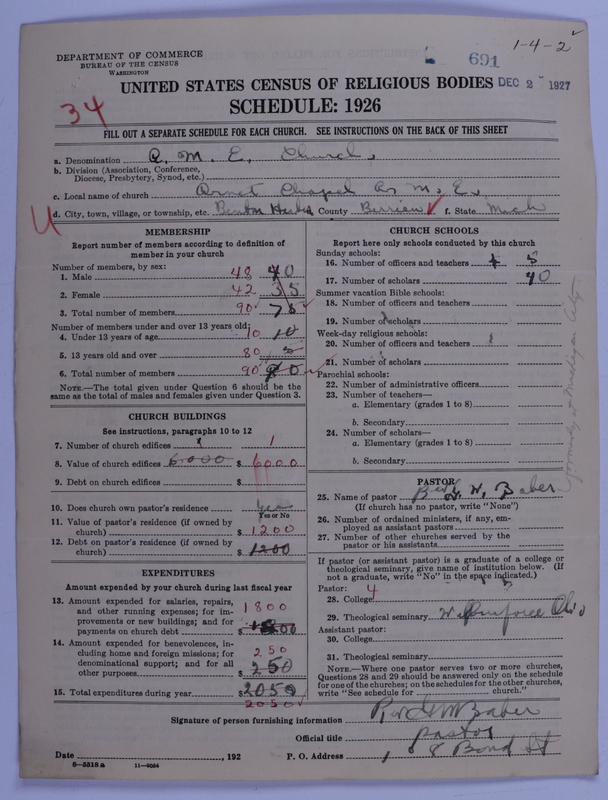 1-4-2
DEPARTMENT OF COMMERCE
BUREAU OF THE CENSUS
WASHINGTON
691
DEC 2 1927
UNITED STATES CENSUS OF RELIGIOUS BODIES
34
SCHEDULE: 1926
FILL OUT A SEPARATE SCHEDULE FOR EACH CHURCH. SEE INSTRUCTIONS ON THE BACK OF THIS SHEET
a. Denomination A. M. E. Church
b. Division (Association, Conference,
Diocese, Presbytery, Synod, etc.)
c. Local name of church Arnet Chapel A. M. E.
d. City, town, village, or township, etc. Benton Harbor County Berrien f. State Mich
MEMBERSHIP
Report number of members according to definition of
member in your church
Number of members, by sex:
1. Male 48 40
2. Female 42 35
3. Total number of members 90 75
Number of members under and over 13 years old:
4. Under 13 years of age 10 10
5. 13 years old and over 80
6. Total number of members 90
NOTE.—The total given under Question 6 should be
the same as the total of males and females given under Question 3.
CHURCH BUILDINGS
See instructions, paragraphs 10 to 12
7. Number of church edifices 1 1
8. Value of church edifices 6000 $ 6000
9. Debt on church edifices $
10. Does church own pastor's residence yes
Yes or No
11. Value of pastor's residence (if owned by
church) $ 1200
12. Debt on pastor's residence (if owned by
church) $ 1200
EXPENDITURES
Amount expended by your church during last fiscal year
13. Amount expended for salaries, repairs,
and other running expenses; for im-
provements or new buildings; and for
payments on church debt $ 1800
14. Amount expended for benevolences, in-
cluding home and foreign missions; for
denominational support; and for all
other purposes $ 250 250
15. Total expenditures during year $ 2050
2050
CHURCH SCHOOLS
Report here only schools conducted by this church
Sunday schools:
16. Number of officers and teachers 5
17. Number of scholars 40
Summer vacation Bible schools:
18. Number of officers and teachers
19. Number of scholars
Week-day religious schools:
20. Number of officers and teachers
21. Number of scholars
Parochial schools:
22. Number of administrative officers
23. Number of teachers—
a. Elementary (grades 1 to 8)
b. Secondary
24. Number of scholars—
a. Elementary (grades 1 to 8)
b. Secondary
formerly at Michigan City
PASTOR
25. Name of pastor Rev. G. W. Baber
(If church has no pastor, write "None")
26. Number of ordained ministers, if any, em-
ployed as assistant pastors
27. Number of other churches served by the
pastor or his assistants
If pastor (or assistant pastor) is a graduate of a college or
theological seminary, give name of institution below. (If
not a graduate, write "No" in the space indicated.)
Pastor:
28. College 4
29. Theological seminary Wilberforce Ohio
Assistant pastor:
30. College
31. Theological seminary
NOTE.—Where one pastor serves two or more churches,
Questions 28 and 29 should be answered only on the schedule
for one of the churches; on the schedules for the other churches,
write "See schedule for church."
Signature of person furnishing information Rev G W Baber
Official title Pastor
Date , 192 P. O. Address 8 Bond St
6—5518a 11—9054